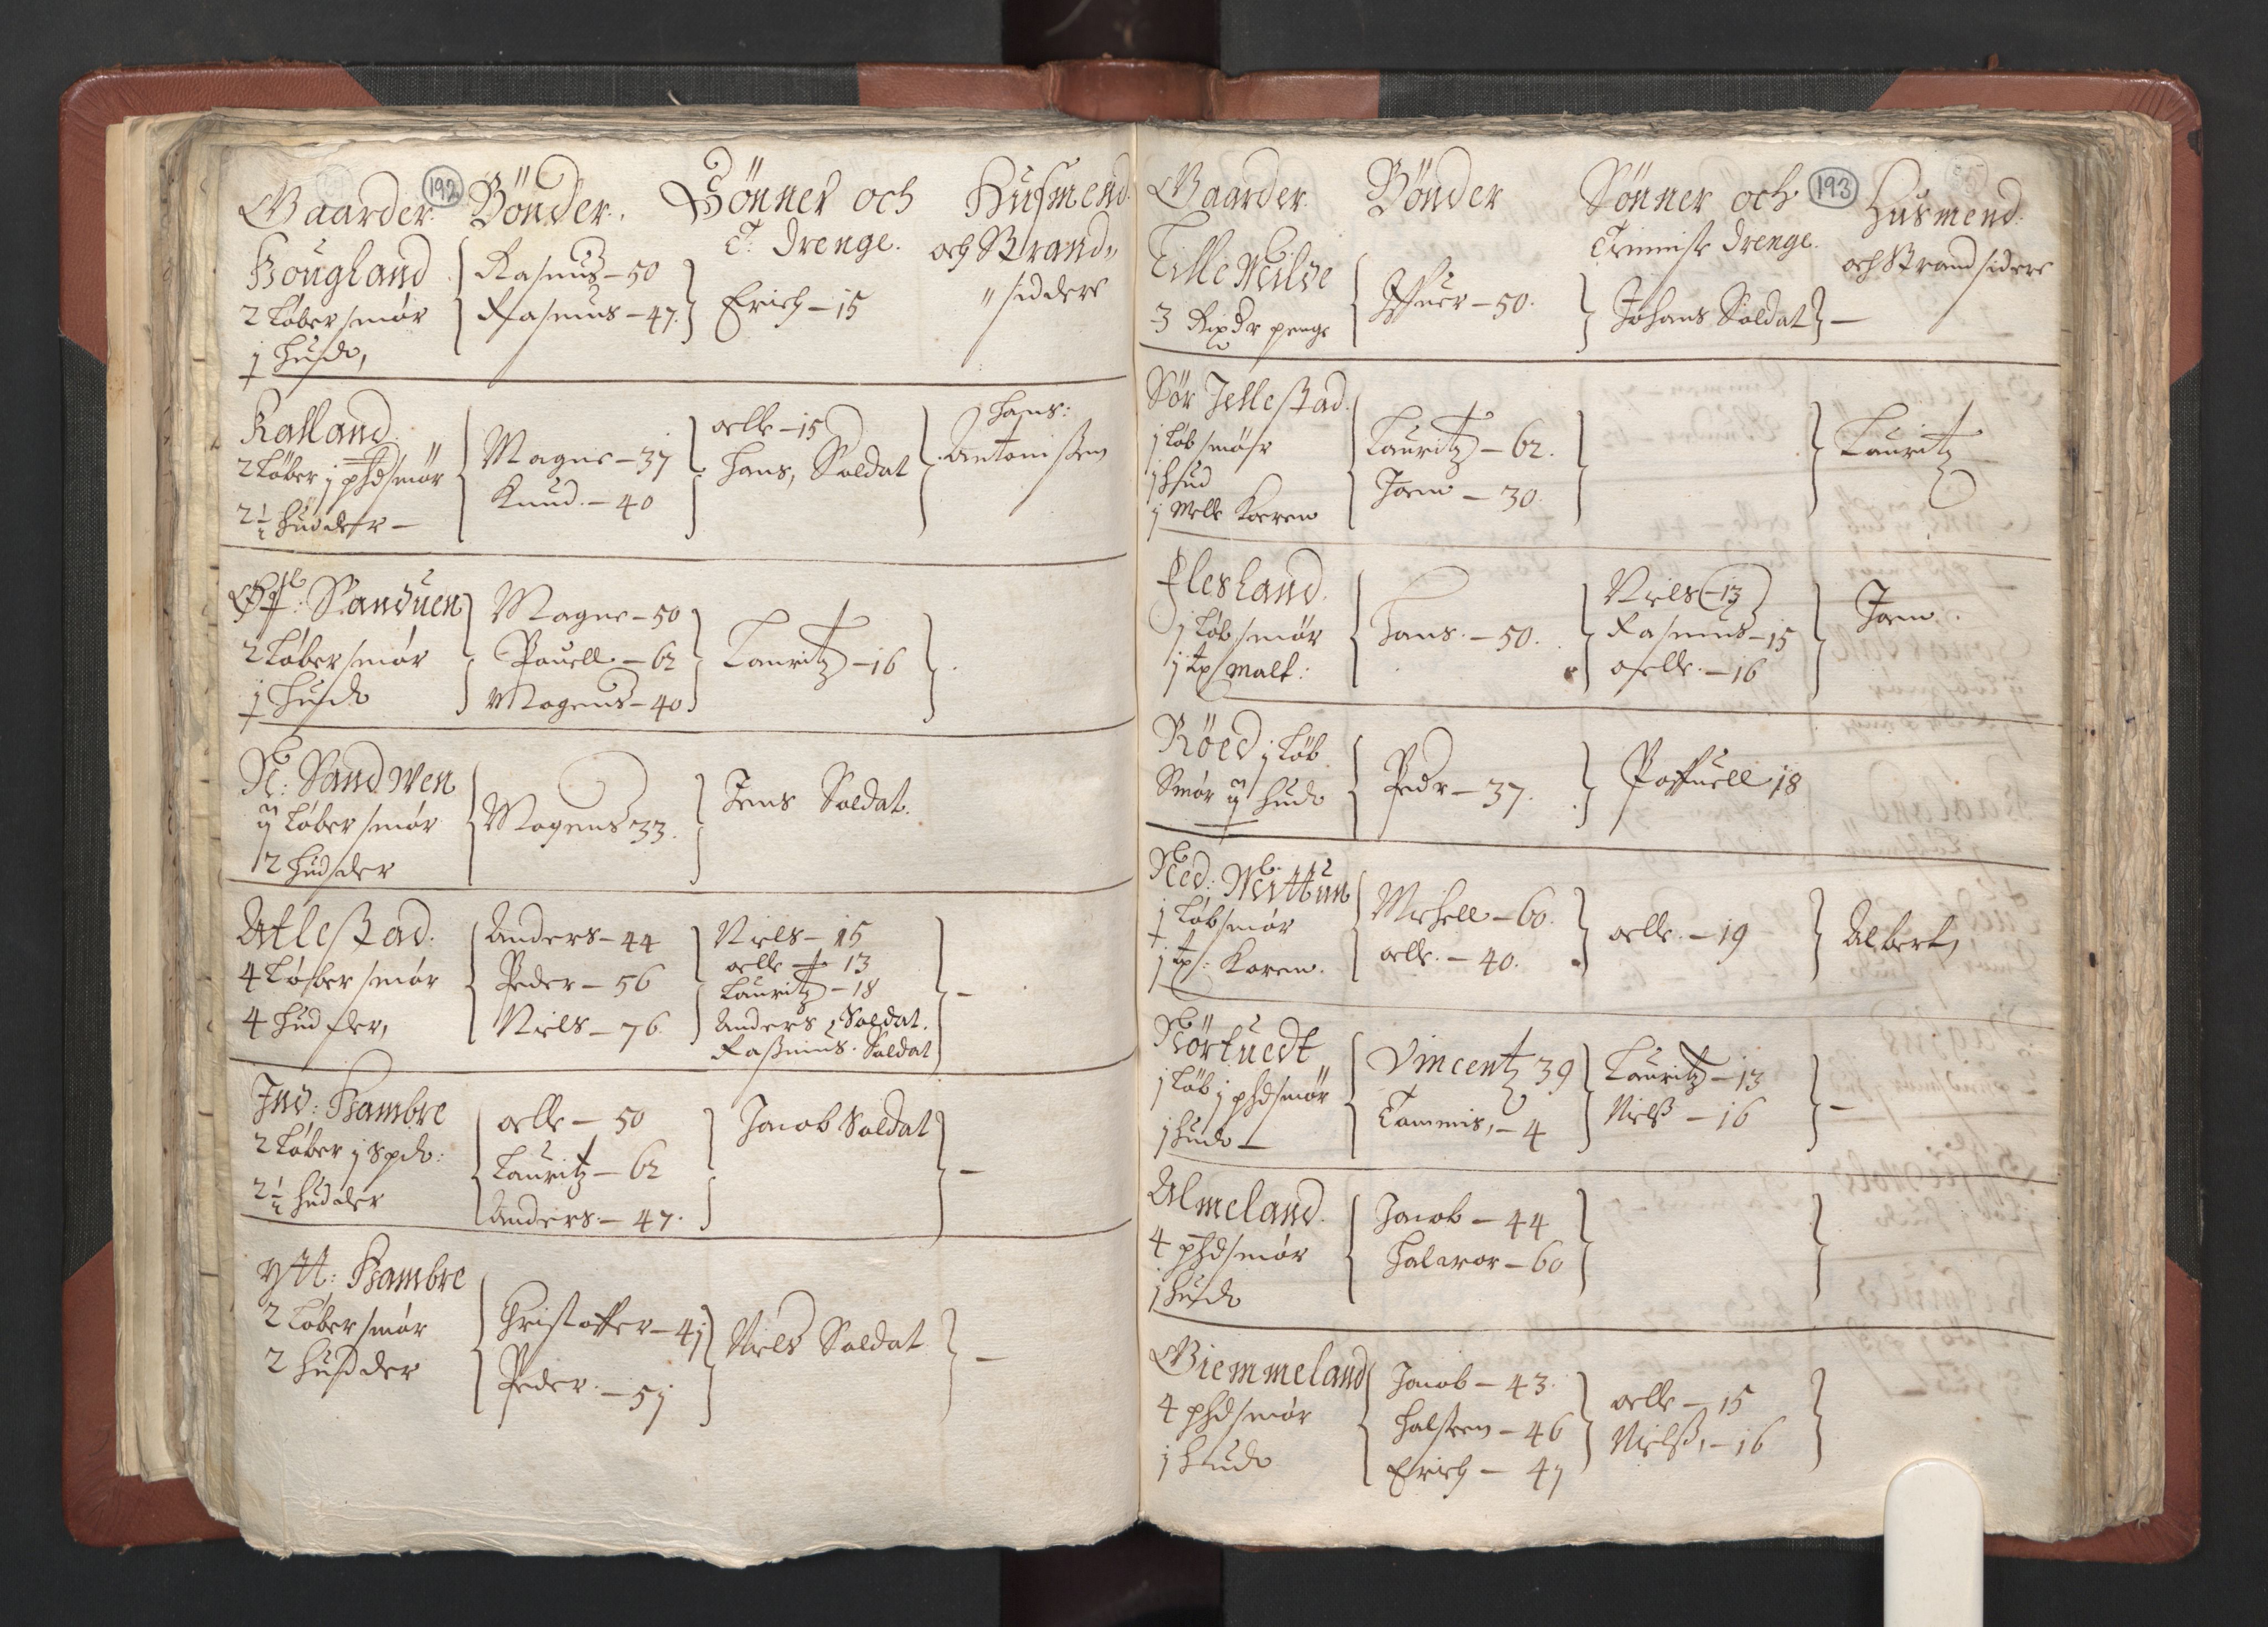 192
Gaarder. Bönder. Sönner och Husmend
T: Drenge. och Strand„
„siddere
Hougland
2 Løber smør
j Hud,
Rasmus – 50
Rasmus – 47.
Erich – 15
Kalland
2 Løber j pd smör
2½ Hudder –
Magne – 37
Knud – 40
oelle – 15
Hans, Soldat
j Hans:
Antonissen
Øf: Sanduen
2 Løber smør
j Hud
Magne – 50
Pouell – 62
Mogens – 40
Lauritz – 16
N: Sandwen
Løber smør
2 Hudder
Mogens 33.
Jens Soldat.
Atlestad.
4 Løber smør
4 Hudder,
Anders – 44
Peder – 56
Niels – 76
Niels – 15
oelle – 13
Lauritz – 18
Anders, Soldat.
Rasmus. Soldat
–
Ind: Hambre
2 Løber j spd:
2½ Hudder
oelle – 50
Lauritz – 62
Anders – 47.
Jacob Soldat
–
Ytt: Hambre
2 Løber smør
2 Hudder
Christoffer – 4j
Peder – 5j
Niels Soldat
–
193
Gaarder. Bönder Sönner och Husmend.
Timmist Drenge. och Strandsidere
Lille Milde
3 Rixdr penge
Iffuer – 50.
Johans Soldat
–
Sör Jellestad.
j Løb smør
j Hud
j Mele Koren
Lauritz – 62.
Joen – 30.
Lauritz
Flesland.
j Løb smør
j tp malt:
Hans – 50.
Niels – 13
Rasmus – 15
oelle – 16
Joen.
Röed j Løb
Smør Hud
Pedr – 37.
Poffuell 18
Ned: Mittun
j Løb smør
j tp: Koren.
Michell – 60.
oelle. – 40.
oelle. – 19
Albert,
Hörtuedt
j Løb j pd smør
j Hud –
Vincentz 39
Tommis, – 4
Lauritz – 13
Nielß – 16
–
Almeland.
4 pd smør
j Hud
Jacob – 44
Halwor – 60
Giemmeland
4 pd smør
j Hud
Jacob – 43.
Halsten – 46
Erich – 4j
oelle – 15
Nielß, – 16